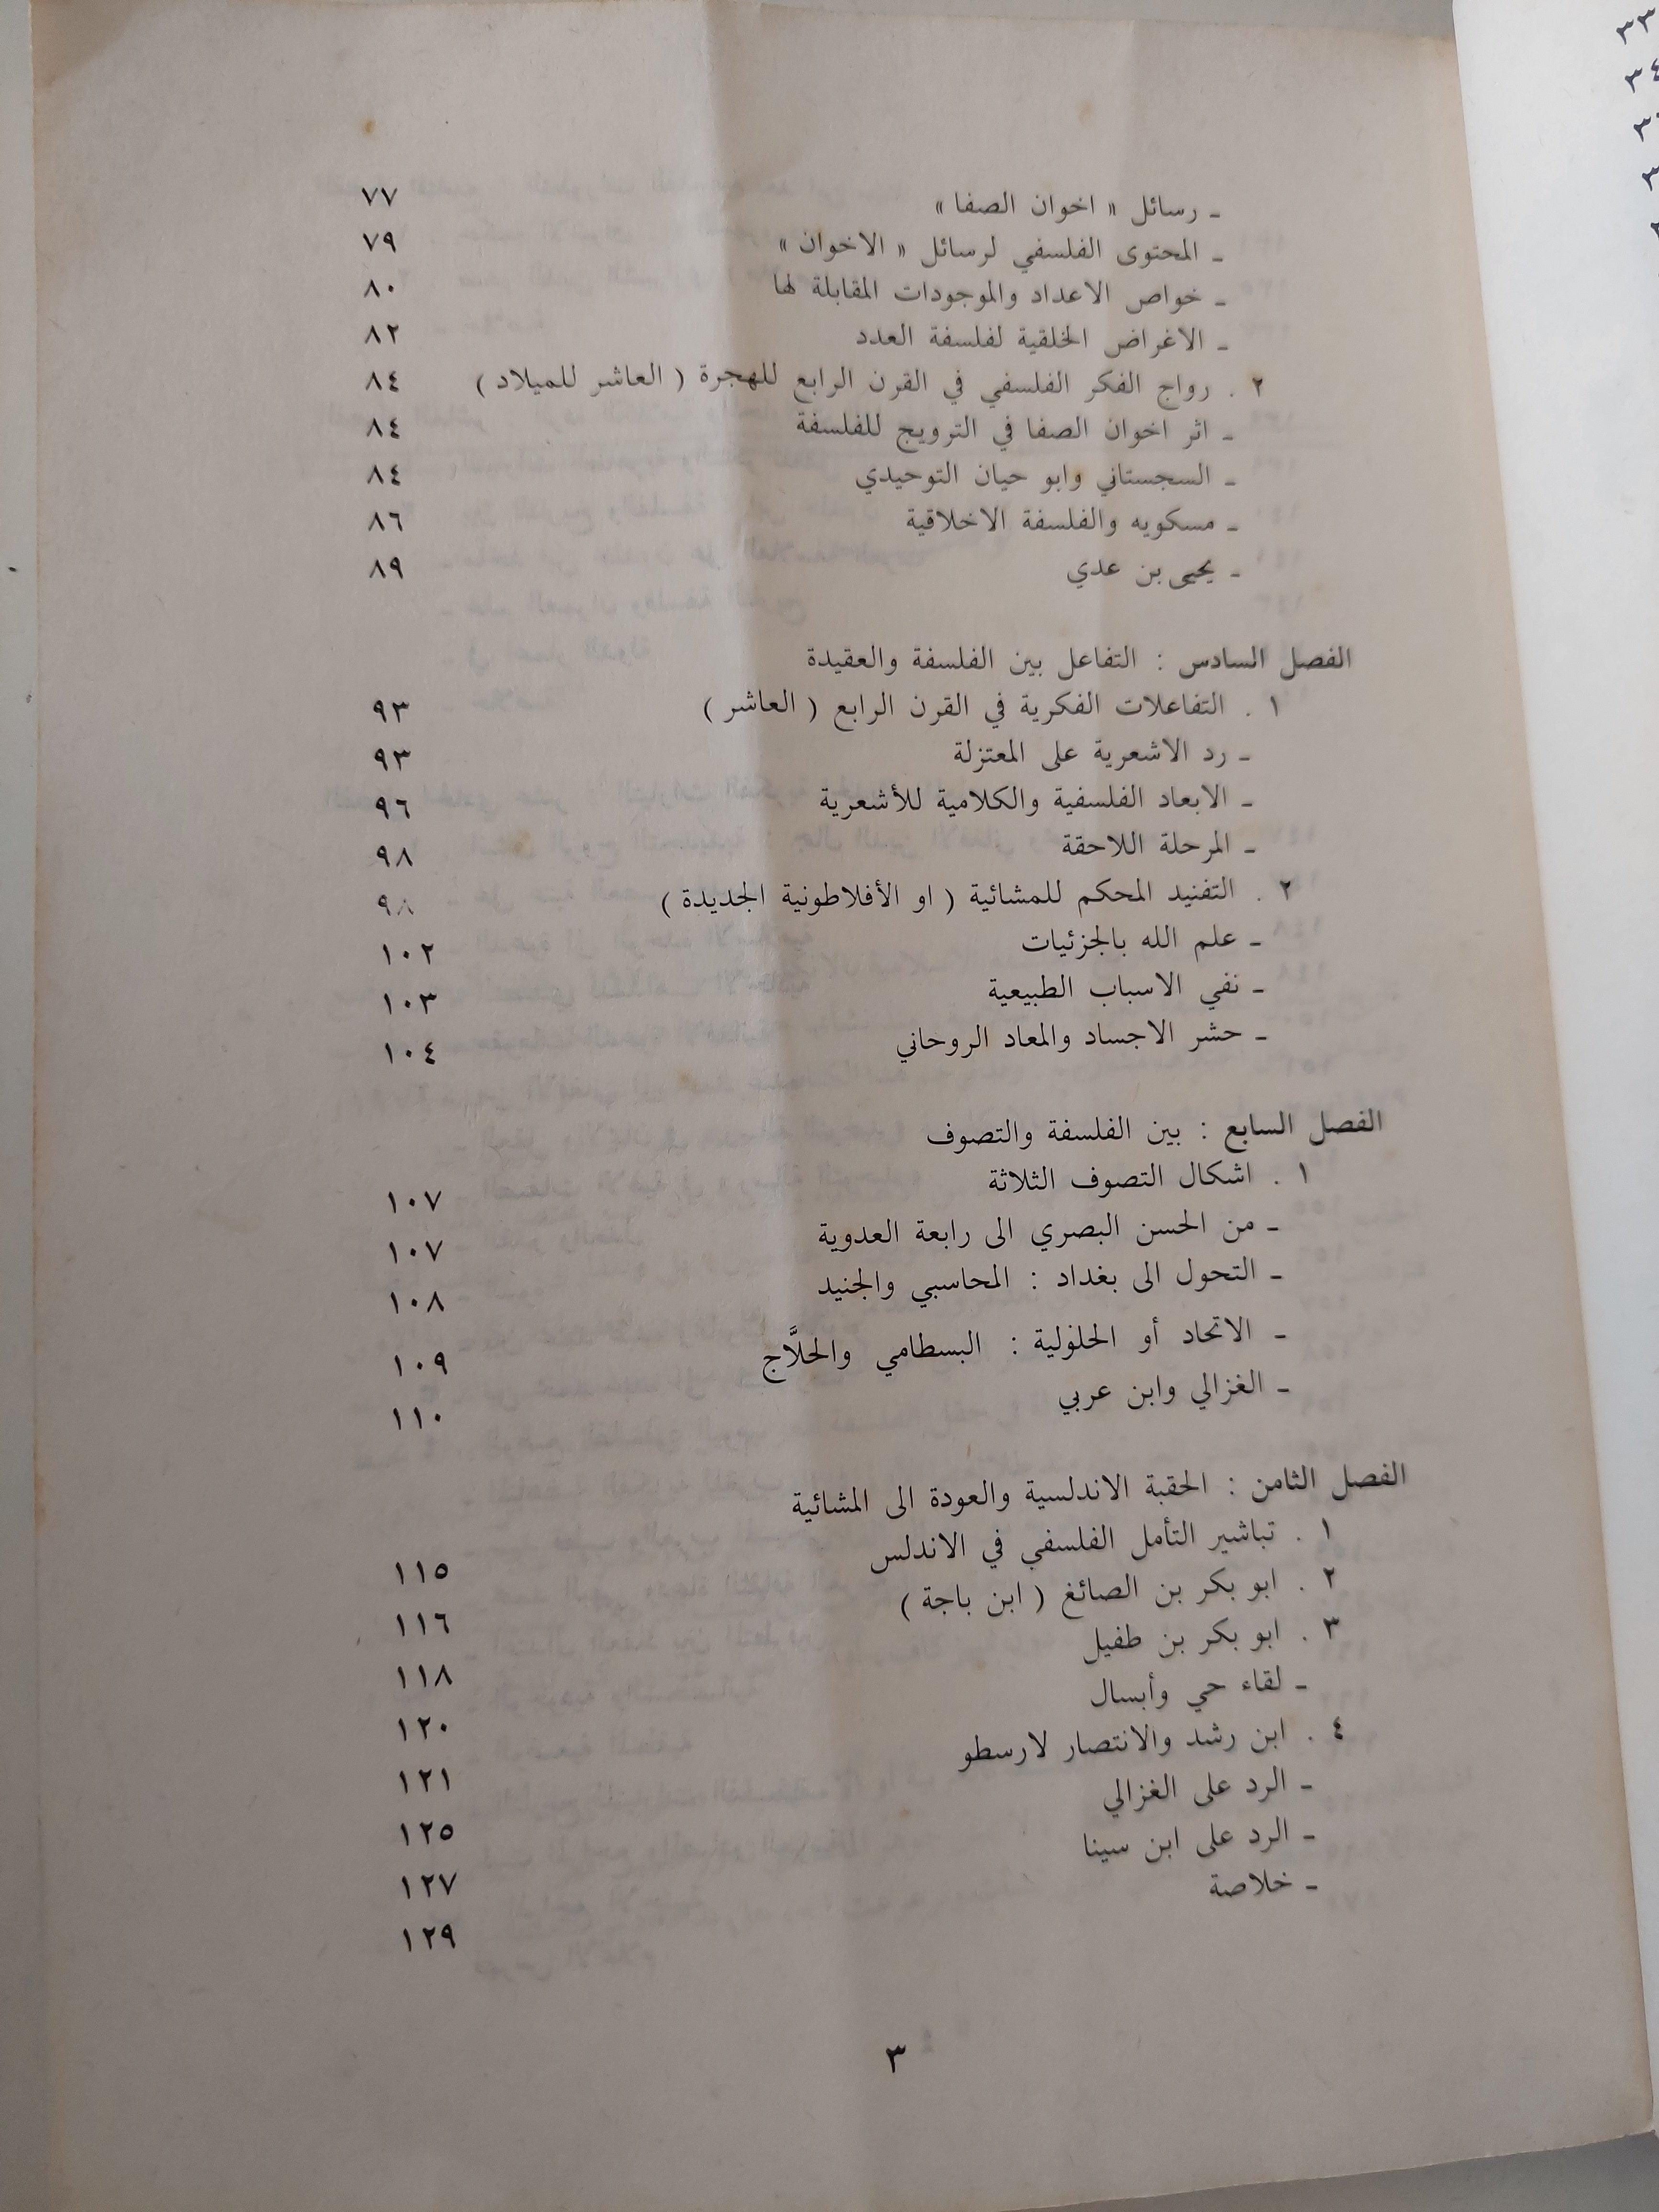 - رسائل « اخوان الصفا » ٧٧
- المحتوى الفلسفي لرسائل « الاخوان » ٧٩
- خواص الاعداد والموجودات المقابلة لها ٨٠
- الاغراض الخلقية لفلسفة العدد ٨٢
٢ . رواج الفكر الفلسفي في القرن الرابع للهجرة ( العاشر للميلاد ) ٨٤
- اثر اخوان الصفا في الترويج للفلسفة ٨٤
- السجستاني وابو حيان التوحيدي ٨٤
- مسكويه والفلسفة الاخلاقية ٨٦
- يحيى بن عدي ٨٩
الفصل السادس : التفاعل بين الفلسفة والعقيدة
١ . التفاعلات الفكرية في القرن الرابع ( العاشر ) ٩٣
- رد الاشعرية على المعتزلة ٩٣
- الابعاد الفلسفية والكلامية للأشعرية ٩٦
- المرحلة اللاحقة ٩٨
٢ . التفنيد المحكم للمشائية ( او الأفلاطونية الجديدة ) ٩٨
- علم الله بالجزئيات ١٠٢
- نفي الاسباب الطبيعية ١٠٣
- حشر الاجساد والمعاد الروحاني ١٠٤
الفصل السابع : بين الفلسفة والتصوف
١ . اشكال التصوف الثلاثة ١٠٧
- من الحسن البصري الى رابعة العدوية ١٠٧
- التحول الى بغداد : المحاسبي والجنيد ١٠٨
- الاتحاد أو الحلولية : البسطامي والحلَّاج ١٠٩
- الغزالي وابن عربي ١١٠
الفصل الثامن : الحقبة الاندلسية والعودة الى المشائية
١ . تباشير التأمل الفلسفي في الاندلس ١١٥
٢ . ابو بكر بن الصائغ ( ابن باجة ) ١١٦
٣ . ابو بكر بن طفيل ١١٨
- لقاء حي وأبسال ١٢٠
٤ . ابن رشد والانتصار لارسطو ١٢١
- الرد على الغزالي ١٢٥
- الرد على ابن سينا ١٢٧
- خلاصة ١٢٩
٣